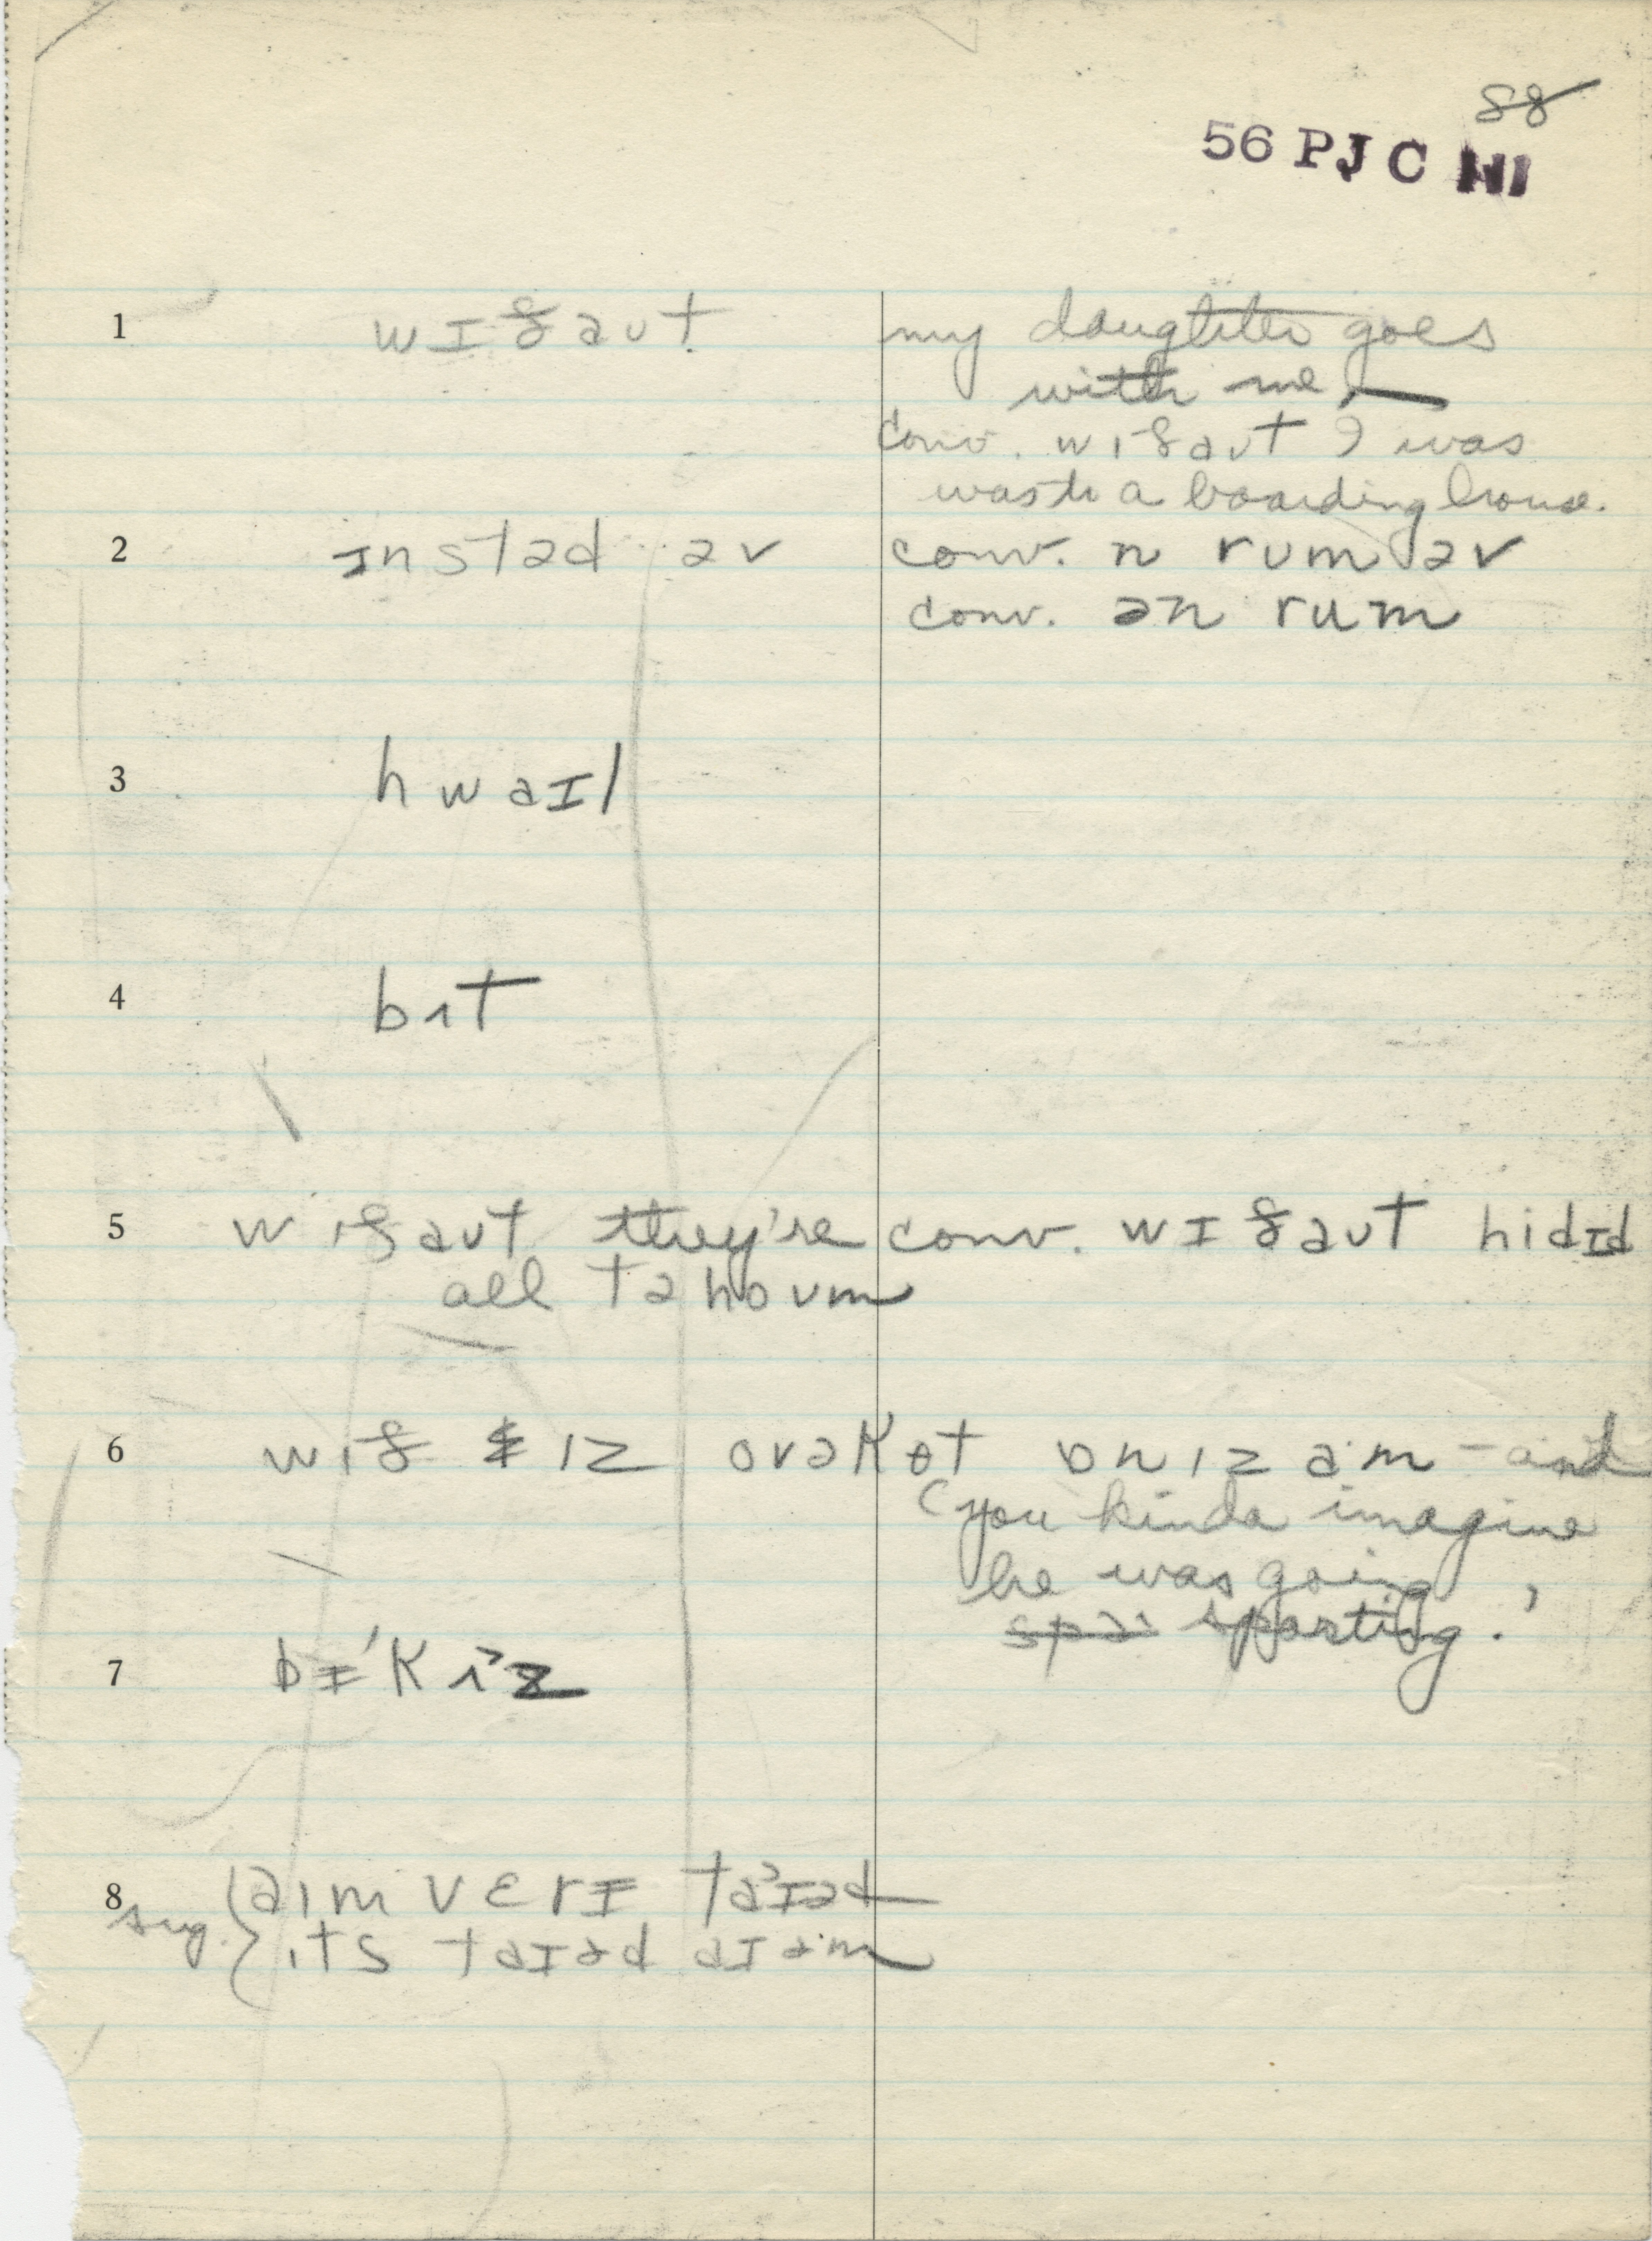 88
56 PJC
1 wɪðaut my daughter goes
with me —
conv. wɪðaut I was
was to a boarding house.
2 ɪnstəd əv conv. n rum əv
conv. ən rum
3 hwaɪl
4 bɪt
5 wɪðaut they're conv. wɪðaut hidɪd
all tə houm
6 wɪð ɪz ovəkɵt ɒn ɪz am - and
(you kinda imagine
he was going
sparting.'
7 bɪ'kɪ^z
8 aɪm vɛrɪ ta^ɪəd
sug. ɪts taɪəd aɪ am